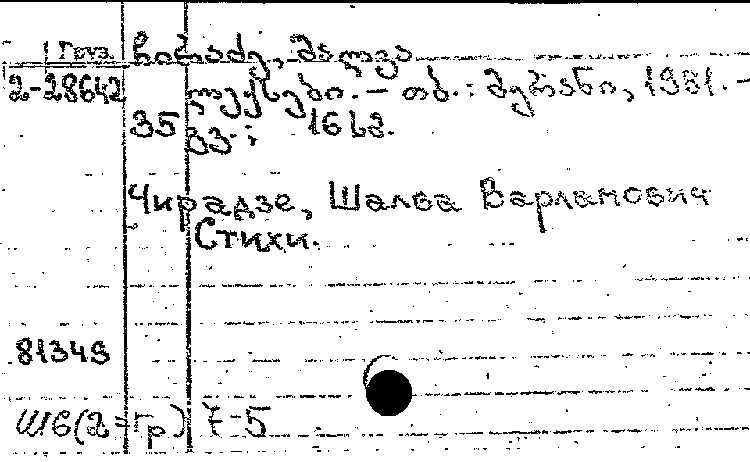 Груз. ჩირაძე, შალვა
2-28642 ლექსები. – თბ.: მერანი, 1981. –
35 გვ.; 16 სმ.
Чирадзе, Шалва Варламович
Стихи.
81349
Ш6(2=Гр) 7-5